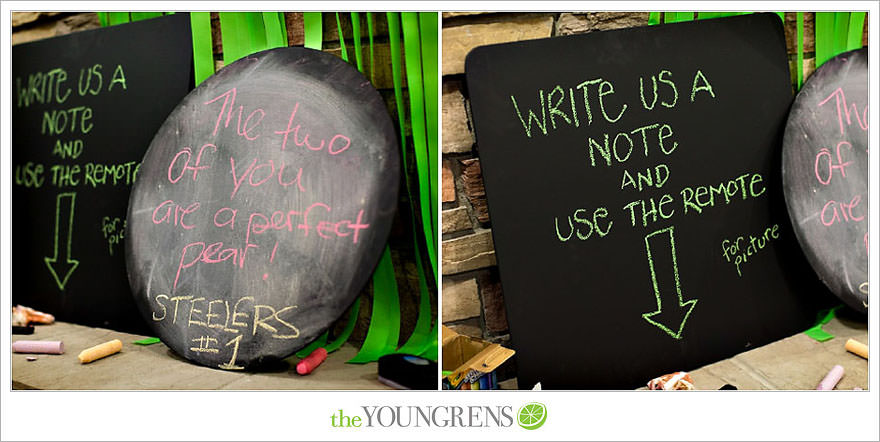 WRITE US A
NOTE
AND
USE THE REMOTE
for
The two
of you
are a perfect
pear!
STEELERS
#1
WRITE US A
NOTE
AND
USE THE REMOTE
for
picture
The
of
are
theYOUNGRENS